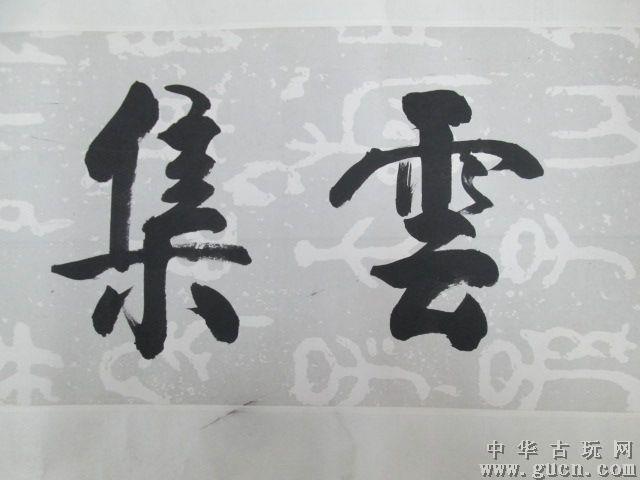 雲集
中华古玩网
www.gucn.com